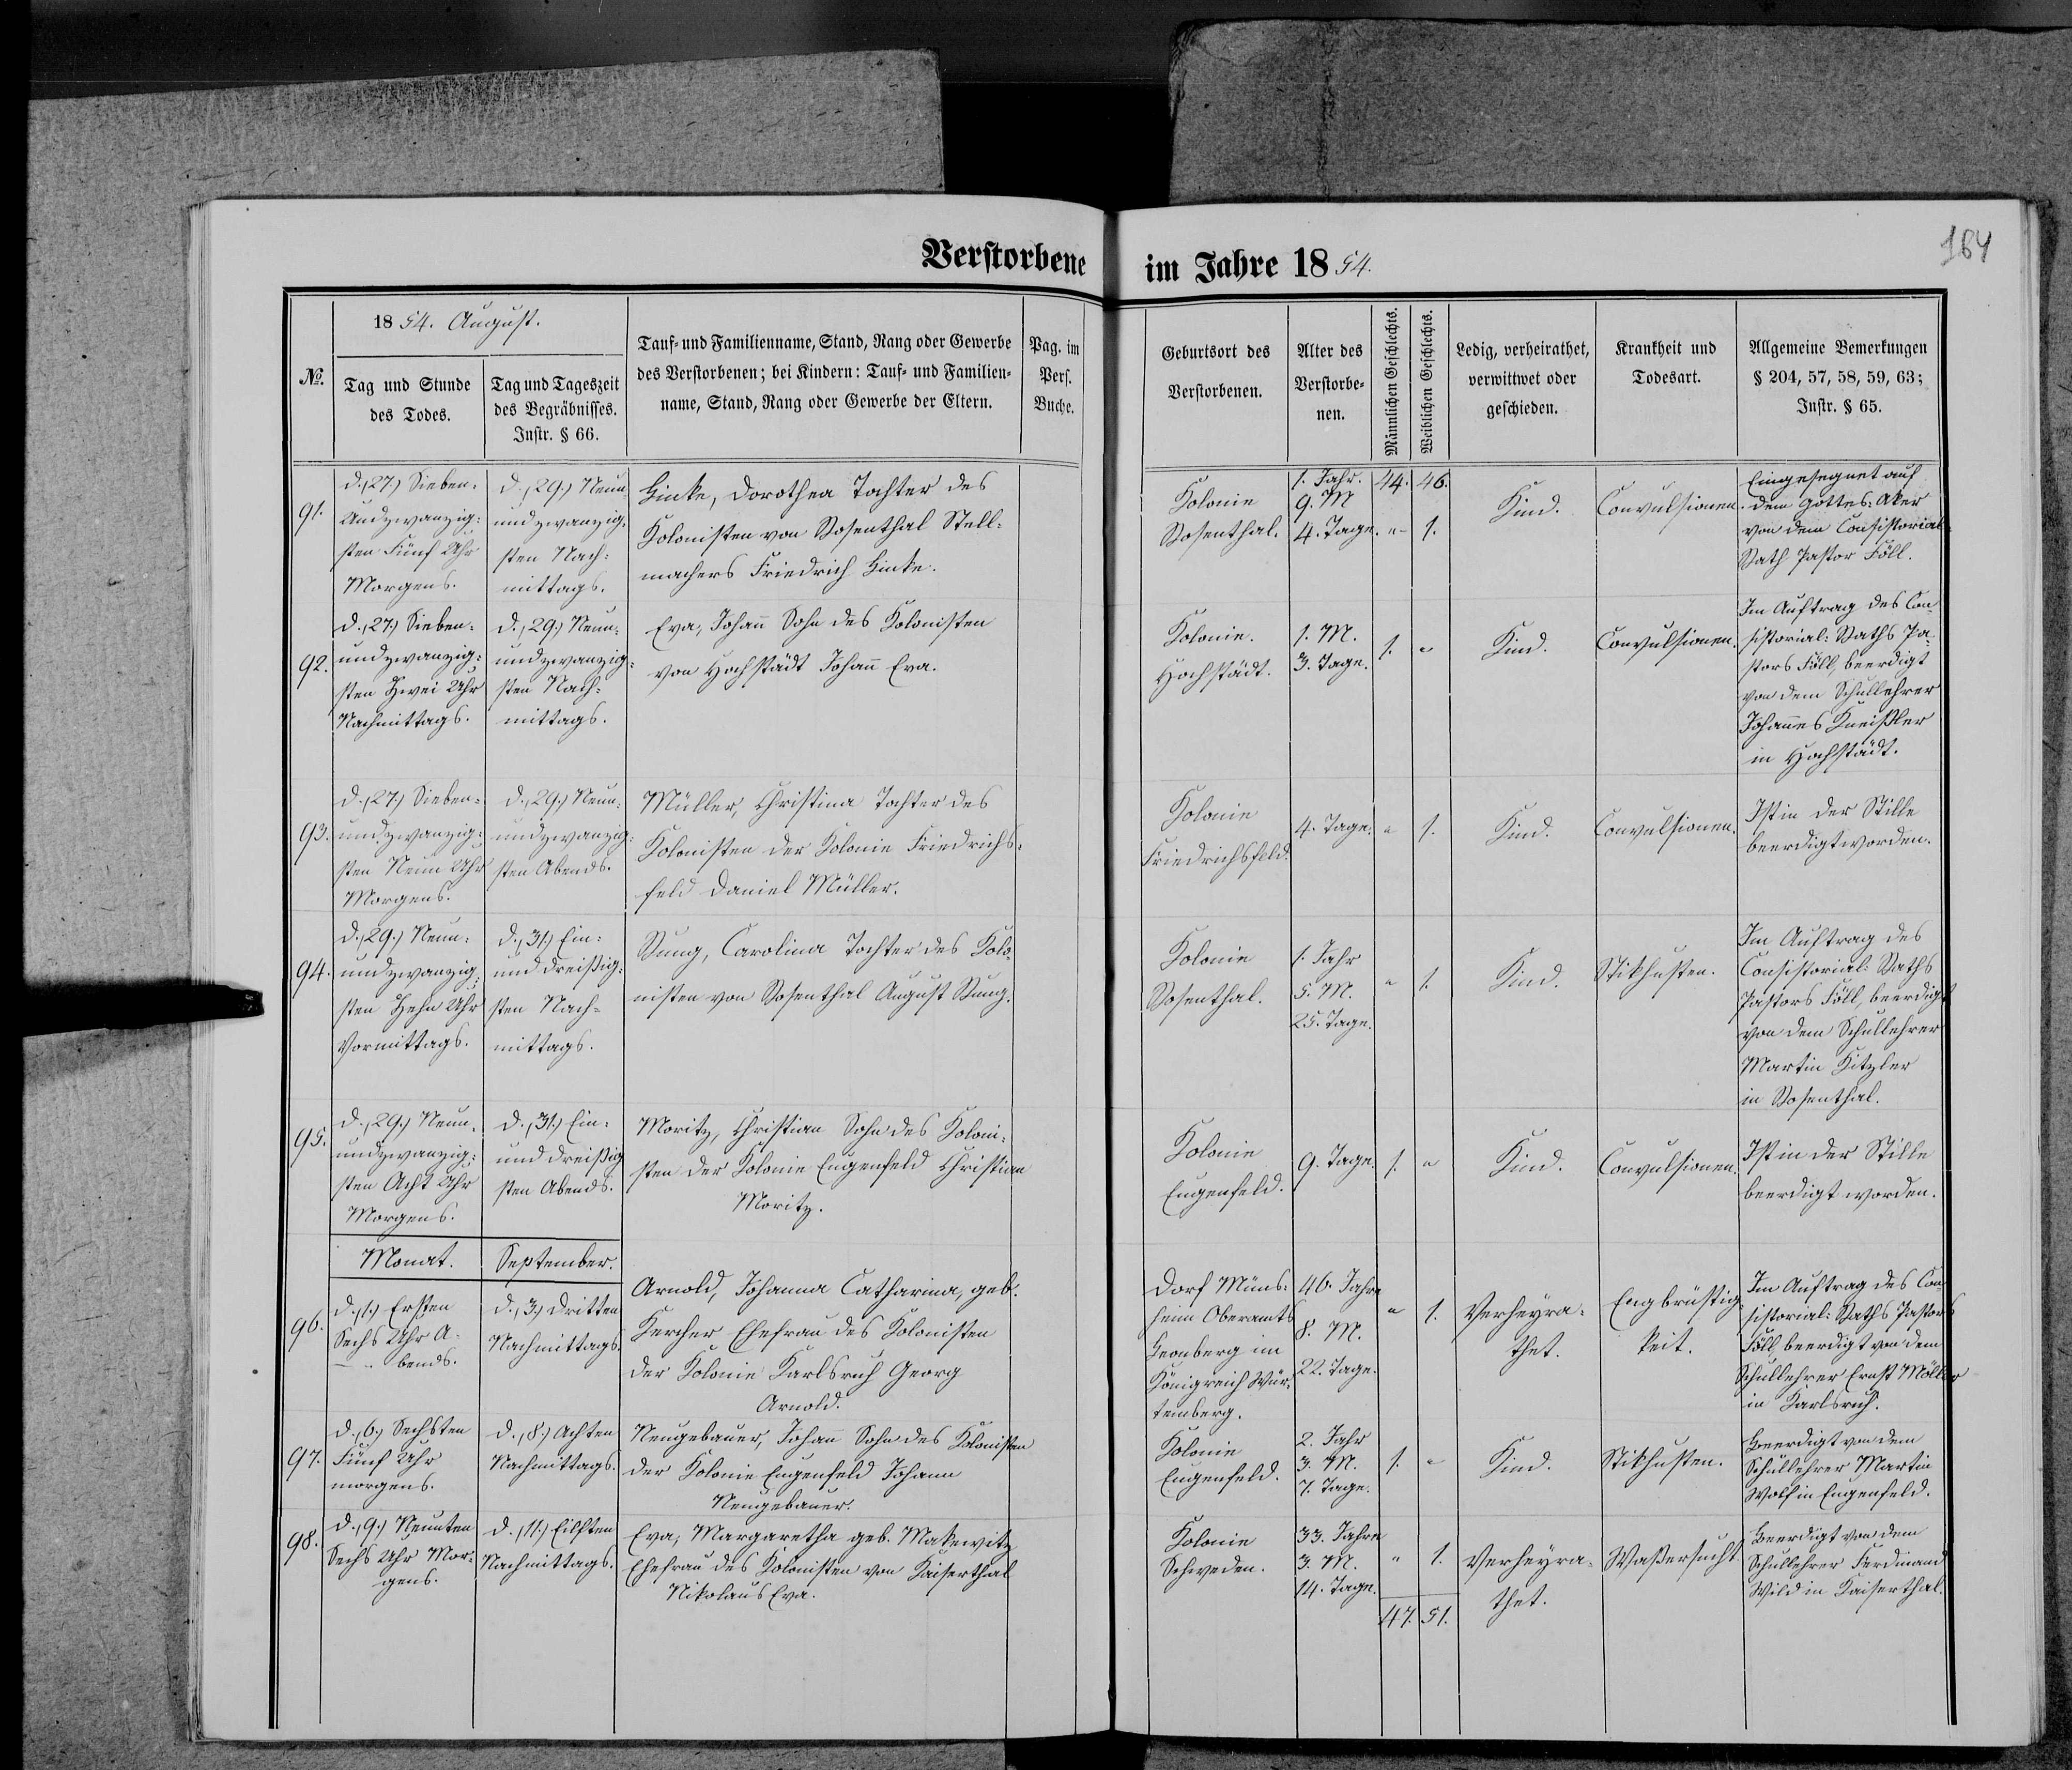 Verstorbene im Jahre 1854.
164
No.
1854. August.
Tag und Stunde des Todes.
Tag und Tageszeit des Begräbnisses. Instr. § 66.
Tauf- und Familienname, Stand, Rang oder Gewerbe
des Verstorbenen; bei Kindern: Tauf- und Familien-
name, Stand, Rang oder Gewerbe der Eltern.
Pag. im Pers. Buche.
Geburtsort des Verstorbenen.
Alter des Verstorbe-nen.
Männlichen Geschlechts.
Weiblichen Geschlechts.
Ledig, verheirathet, verwittwet oder geschieden.
Krankheit und Todesart.
Allgemeine Bemerkungen § 204, 57, 58, 59, 63; Instr. § 65.
44. 46.
91.
d. (27.) Sieben-
undzwanzig-
sten Fünf Uhr
Morgens.
d. (29.) Neun
undzwanzig-
sten Nach-
mittags.
Linke, Dorothea Tochter des
Kolonisten von Rosenthal Stell-
machers Friedrich Linke.
Kolonie
Rosenthal.
1. Jahr.
9. M
4. Tage.
" 1.
Kind.
Convulsionen.
Eingesegnet auf
dem Gottes-Aker
von dem Consistorial-
Rath Pastor Föll.
92.
d. (27.) Sieben-
undzwanzig-
sten Zwei Uhr
Nachmittags.
d. (29.) Neun-
undzwanzig-
sten Nach-
mittags.
Eva, Johann Sohn des Kolonisten
von Hochstädt Johann Eva.
Kolonie.
Hochstädt.
1. M.
3. Tage.
1. "
Kind.
Convulsionen.
Im Auftrag des Con-
sistorial-Raths Pa-
stors Föll, beerdigt
von dem Schullehrer
Johannes Kneißler
in Hochstädt.
93.
d. (27.) Sieben-
undzwanzig-
sten Neun Uhr
Morgens.
d. (29.) Neun-
undzwanzig-
sten Abends.
Müller, Christina Tochter des
Kolonisten der Kolonie Friedrichs-
feld Daniel Müller.
Kolonie
Friedrichsfeld.
4. Tage.
" 1.
Kind.
Convulsionen.
Ist in der Stille
beerdigt worden.
94.
d. (29.) Neun-
undzwanzig-
sten Zehn Uhr
Vormittags.
d. (31.) Ein-
und dreißig-
sten Nach-
mittags.
Rung, Carolina Tochter des Kolo-
nisten von Rosenthal August Rung.
Kolonie
Rosenthal.
1. Jahr
5. M.
25. Tage.
" 1.
Kind.
Stikhusten.
Im Auftrag des
Consistorial-Raths
Pastors Föll, beerdigt
von dem Schullehrer
Martin Kitzler
in Rosenthal.
95.
d. (29.) Neun-
undzwanzig-
sten Acht Uhr
Morgens.
d. (31.) Ein-
und dreißig
sten Abends.
Moritz, Christian Sohn des Koloni-
sten der Kolonie Eugenfeld Christian
Moritz.
Kolonie
Eugenfeld.
9. Tage.
1. "
Kind.
Convulsionen.
Ist in der Stille
beerdigt worden.
Monat. September.
96.
d. (1.) Ersten
Sechs Uhr A-
bends.
d. (3.) Dritten
Nachmittags.
Arnold, Johanna Catharina, geb.
Kercher Ehefrau des Kolonisten
der Kolonie Karlsruh Georg
Arnold.
Dorf Müns-
heim Oberamts
Leonberg im
Königreich Wür-
temberg.
46. Jahre
8. M.
22. Tage.
" 1.
Verheyra-
thet.
Engbrüstig-
keit.
Im Auftrag des Con-
sistorial-Raths Pastors
Föll, beerdigt von dem
Schullehrer Ernst Möller
in Karlsruh.
97.
d. (6.) Sechsten
Fünf Uhr
morgens.
d. (8.) Achten
Nachmittags.
Neugebauer, Johann Sohn des Kolonisten
der Kolonie Eugenfeld Johann
Neugebauer.
Kolonie
Eugenfeld.
2. Jahr
3. M.
7. Tage.
1. "
Kind.
Stikhusten.
Beerdigt von dem
Schullehrer Martin
Wolf in Eugenfeld.
98.
d. (9.) Neunten
Sechs Uhr Mor-
gens.
d. (11.) Eilften
Nachmittags.
Eva, Margaretha geb. Makewitz
Ehefrau des Kolonisten von Kaiserthal
Nikolaus Eva.
Kolonie
Schweden.
33. Jahre
3. M.
14. Tage.
" 1.
Verheyra-
thet.
Waßersucht
Beerdigt von dem
Schullehrer Ferdinand
Wild in Kaiserthal.
47. 51.